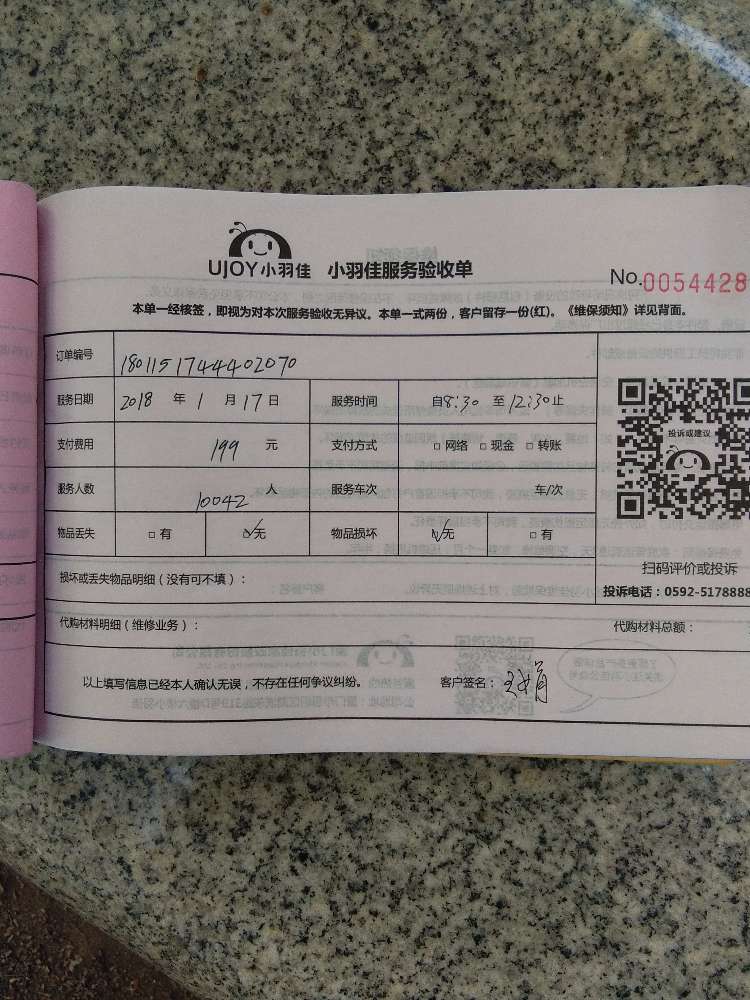 UJOY小羽佳 小羽佳服务验收单
No.0054428
本单一经核签，即视为对本次服务验收无异议。本单一式两份，客户留存一份(红)。《维保须知》详见背面。
订单编号 1801151744402070
服务日期 2018 年 1 月 17 日 服务时间 自8:30 至 12:30止
支付费用 199 元 支付方式 □ 网络 □ 现金 □ 转账
服务人数 10042 人 服务车次 车/次
物品丢失 □ 有 ☑无 物品损坏 ☑无 □ 有
投诉或建议
扫码评价或投诉
投诉电话：0592-5178888
损坏或丢失物品明细（没有可不填）：
代购材料明细（维修业务）： 代购材料总额：
以上填写信息已经本人确认无误，不存在任何争议纠纷。 客户签名：